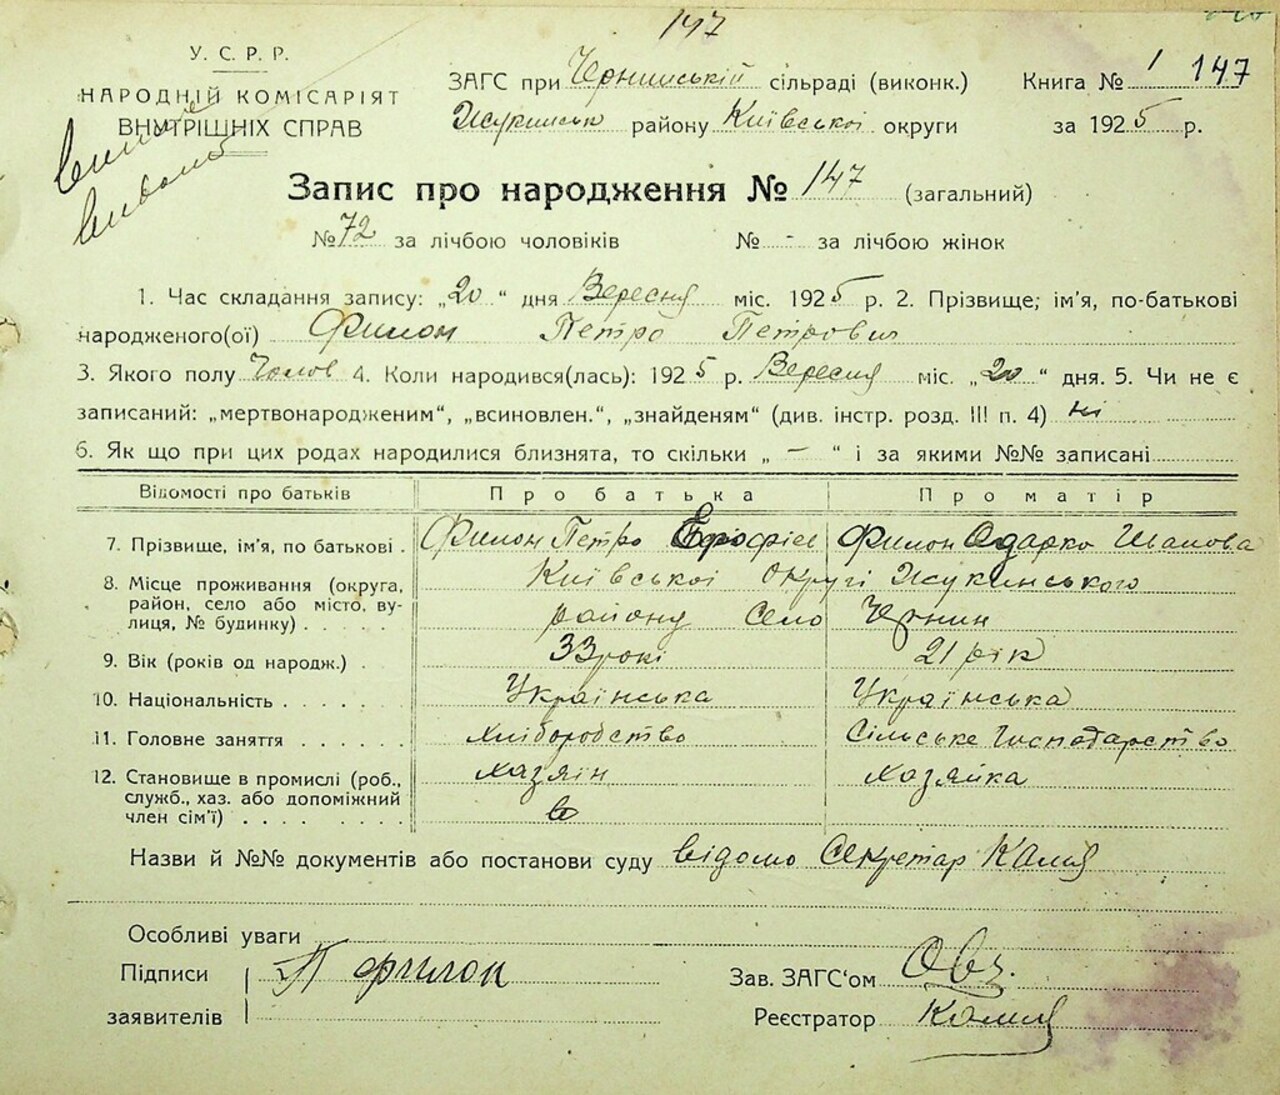 147
У. С. Р. Р.
НАРОДНІЙ КОМІСАРІЯТ
ВНУТРІШНІХ СПРАВ
ЗАГС при Чернинській сільраді (виконк.)
Жукинськ району Київської округи
Книга № 1 147
за 1925 р.
Запис про народження № 147 (загальний)
№ 72 за лічбою чоловіків № - за лічбою жінок
1. Час складання запису: „20“ дня Вересня міс. 1925 р. 2. Прізвище, ім'я, по-батькові
народженого(ої) Филон Петро Петрович
3. Якого полу Чолов 4. Коли народився(лась): 1925 р. Вересня міс. „20“ дня. 5. Чи не є
записаний: „мертвонародженим“, „всиновлен.“, „знайденям“ (див. інстр. розд. III п. 4) ні
6. Як що при цих родах народилися близнята, то скільки „ — “ і за якими №№ записані
Відомості про батьків Про батька Про матір
7. Прізвище, ім'я, по батькові . Филон Петро Филон Одарко
8. Місце проживання (округа, район, село або місто, вулиця, № будинку) . . . . . Київської округі Жукинського
району село Чернин
9. Вік (років од народж.) . 33 рокі 21 рік
10. Національність . . . . . . Українська Українська
11. Головне заняття . . . . . Хліборобство Сільське Господарство
12. Становище в промислі (роб., служб., хаз. або допоміжний член сім'ї) . . . . . . . . хазяін хазяйка
Назви й №№ документів або постанови суду відомо Секретар
Особливі уваги
Підписи П Филон
заявителів
Зав. ЗАГС‘ом
Реєстратор